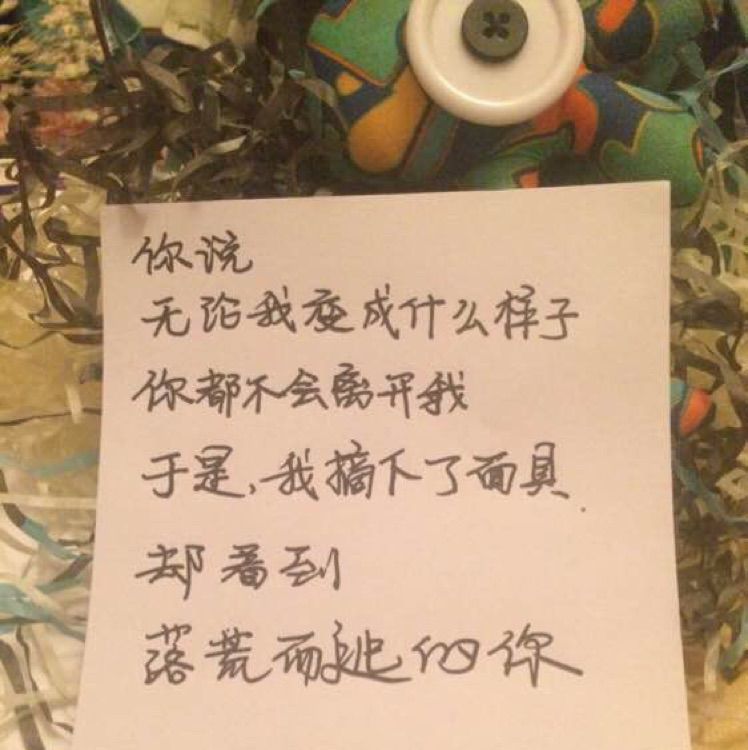 你说
无论我变成什么样子
你都不会离开我
于是,我摘下了面具.
却看到
落荒而逃的你